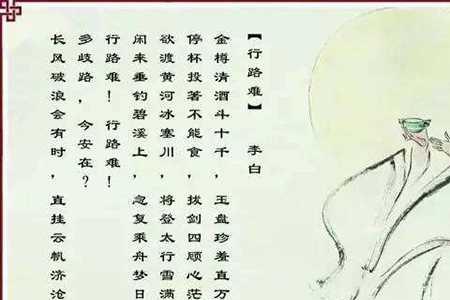 【行路难】 李白
金樽清酒斗十千，玉盘珍羞直万
停杯投著不能食，拔剑四顾心茫
欲渡黄河冰塞川，将登太行雪满
闲来垂钓碧溪上，忽复乘舟梦日
行路难！行路难！
多歧路，今安在？
长风破浪会有时，直挂云帆济沧